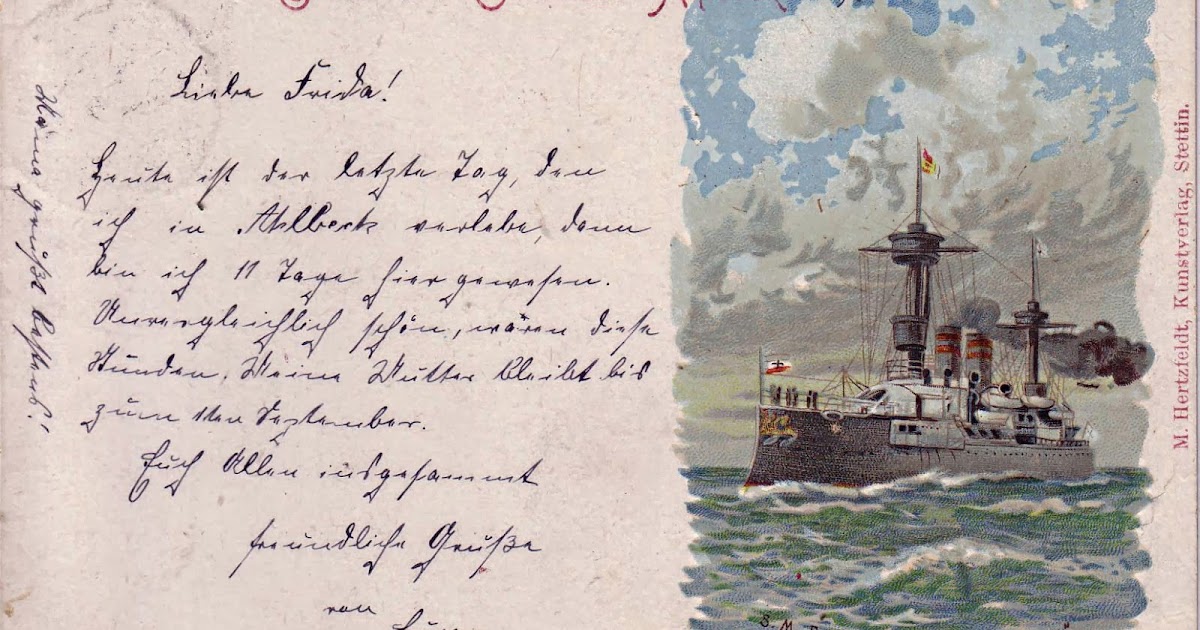 Liebe Frida!
Heute ist der letzte Tag, den
ich in Ahlbeck verlebe, dann
bin ich 11 Tage hier gewesen.
Unvergleichlich schön, wären diese
Stunden. Meine Mutter bleibt bis
zum 1ten September.
Euch Allen insgesammt
freundliche Grüße
von
Mama grüßt bestens!
M. Hertzfeldt, Kunstverlag, Stettin.
S. M.